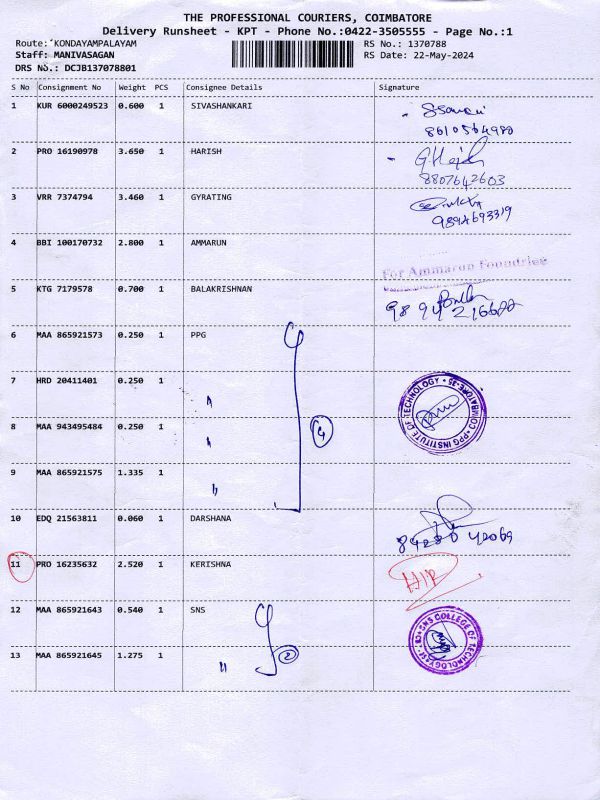 THE PROFESSIONAL COURIERS, COIMBATORE
Delivery Runsheet - KPT - Phone No.:0422-3505555 - Page No.:1
Route: KONDAYAMPALAYAM RS No.: 1370788
Staff: MANIVASAGAN RS Date: 22-May-2024
DRS No.: DCJB137078801
S No Consignment No Weight PCS Consignee Details Signature
1 KUR 6000249523 0.600 1 SIVASHANKARI
8610564980
2 PRO 16190978 3.650 1 HARISH
8807642603
3 VRR 7374794 3.460 1 GYRATING
9894693319
4 BBI 100170732 2.800 1 AMMARUN
For Ammarun Foundries
5 KTG 7179578 0.700 1 BALAKRISHNAN
6 MAA 865921573 0.250 1 PPG
7 HRD 20411401 0.250 1 "
PPG INSTITUTE OF TECHNOLOGY * COIMBATORE-35
8 MAA 943495484 0.250 1 " 4
9 MAA 865921575 1.335 1 "
10 EDQ 21563811 0.060 1 DARSHANA
11 PRO 16235632 2.520 1 KERISHNA
12 MAA 865921643 0.540 1 SNS
SNS COLLEGE OF TECHNOLOGY
13 MAA 865921645 1.275 1 " 2